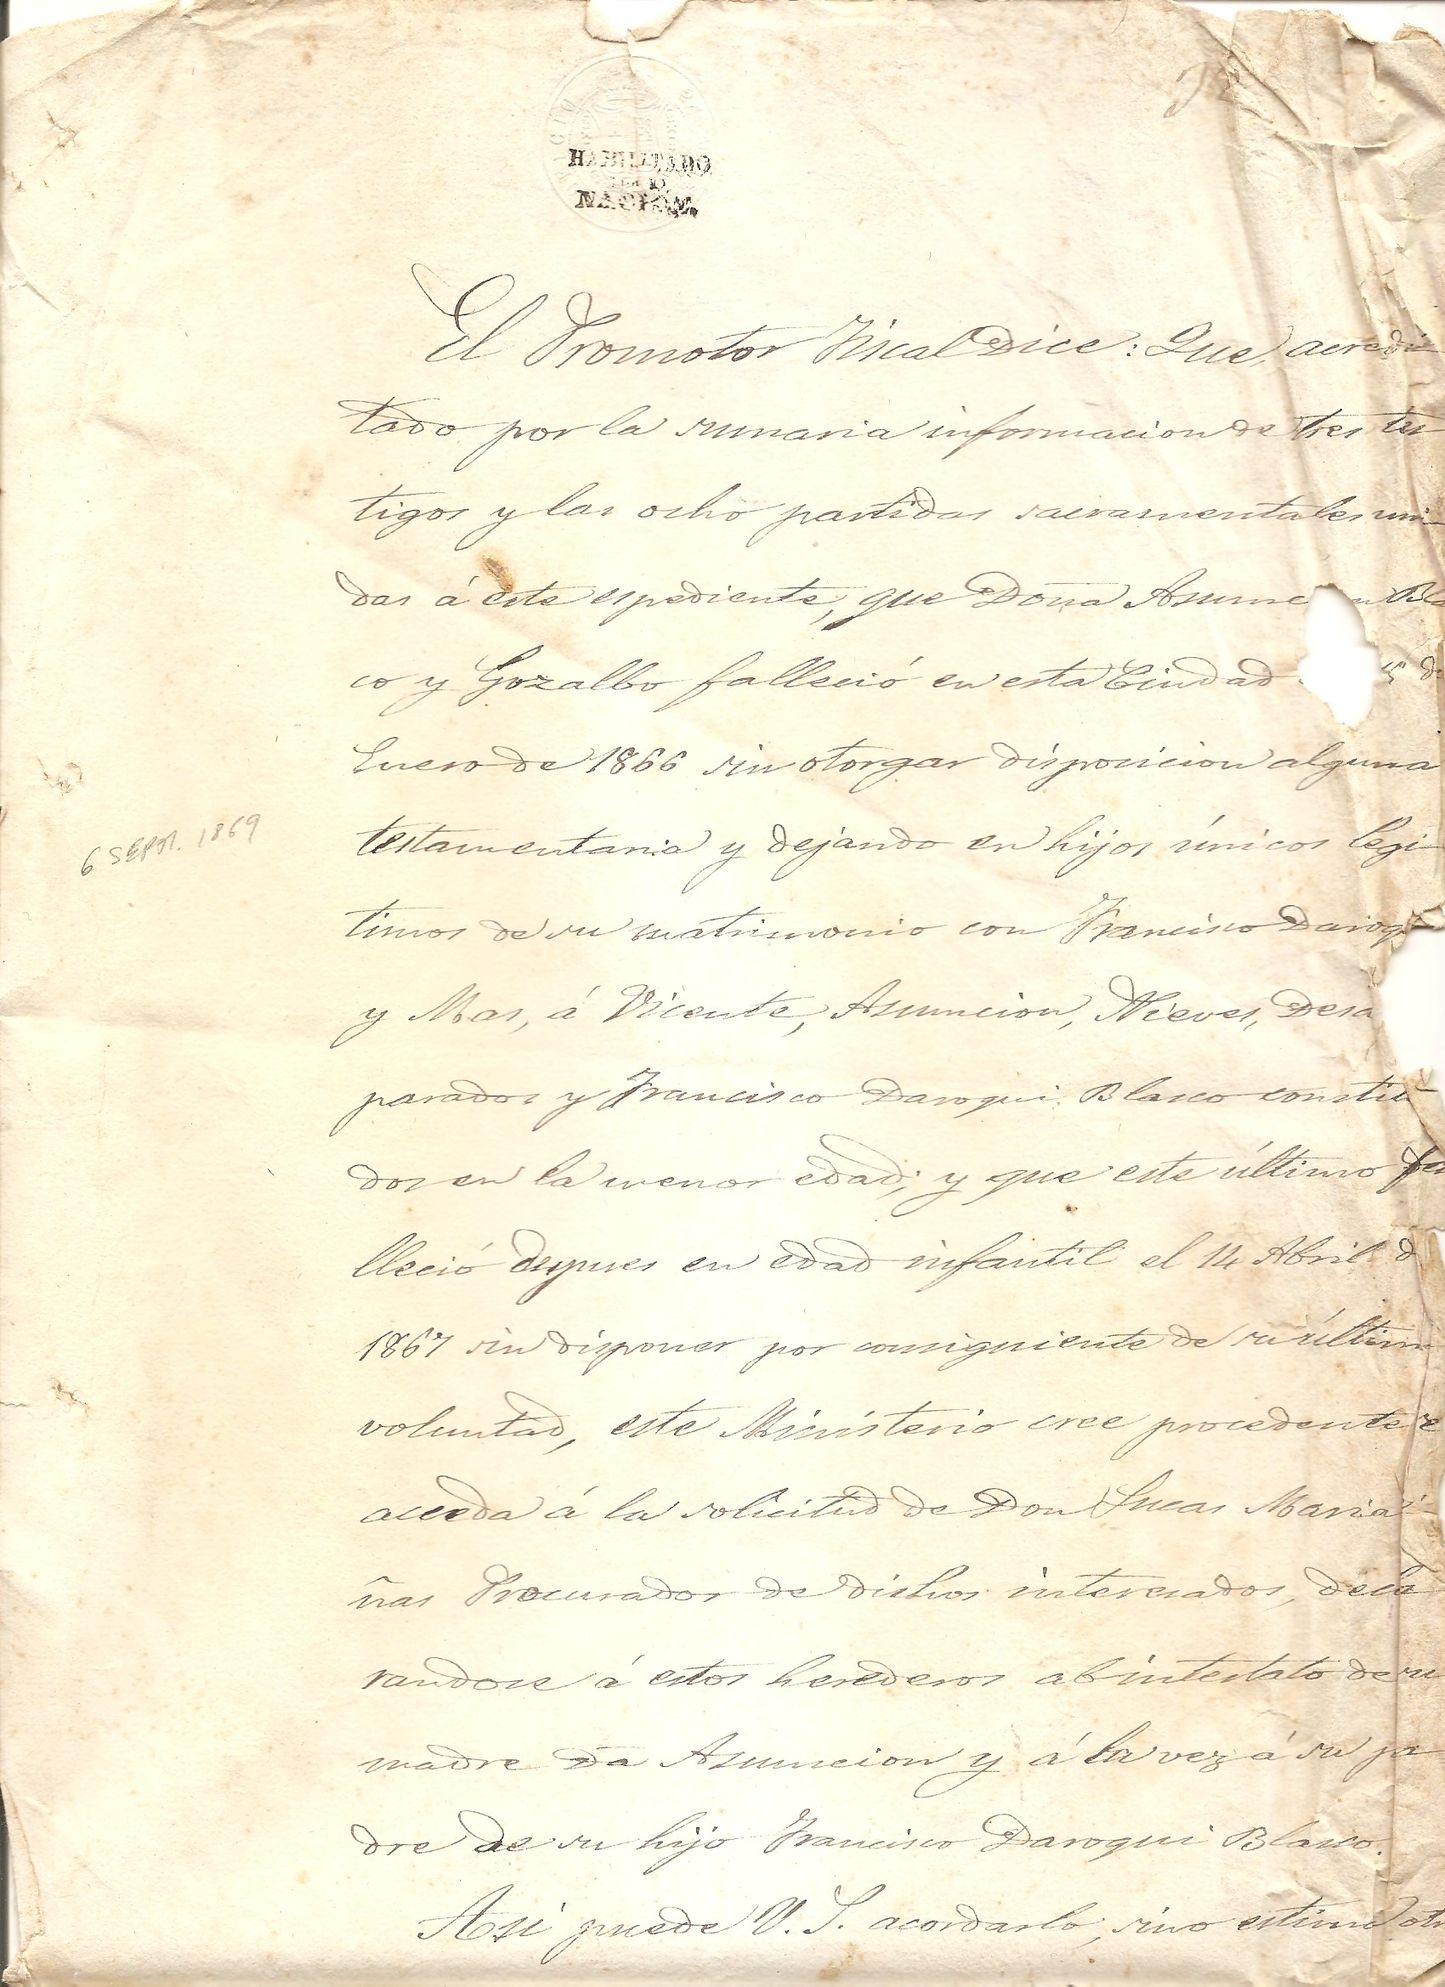 HABILITADO
POR LA
NACION.
El Promotor Fiscal Dice: Que, acredi
tado por la sumaria informacion de tres tes
tigos y las ocho partidas sacramentales uni-
das á este espediente, que Doña Asuncion Blas
co y Gozalbo falleció en esta Ciudad 5 de
Enero de 1866 sin otorgar disposicion alguna
testamentaria y dejando en hijos únicos legi-
timos de su matrimonio con Francisco Daroqui
y Mas, á Vicente, Asuncion, Nieves, Desa
parados y Francisco Daroqui Blasco constitui
dos en la menor edad; y que este último fa
lleció despues en edad infantil el 14 Abril de
1867 sin disponer por consiguiente de su última
voluntad, este Ministerio cree procedente se
acceda á la solicitud de Don Lucas Mariá
ñas Procurador de dichos interesados, decla
randose á estos herederos abintestato de su
madre Da Asuncion y á la vez á su pa
dre de su hijo Francisco Daroqui Blasco.
Asi puede V. S. acordarlo, sino estima otr
6 SEPT. 1869